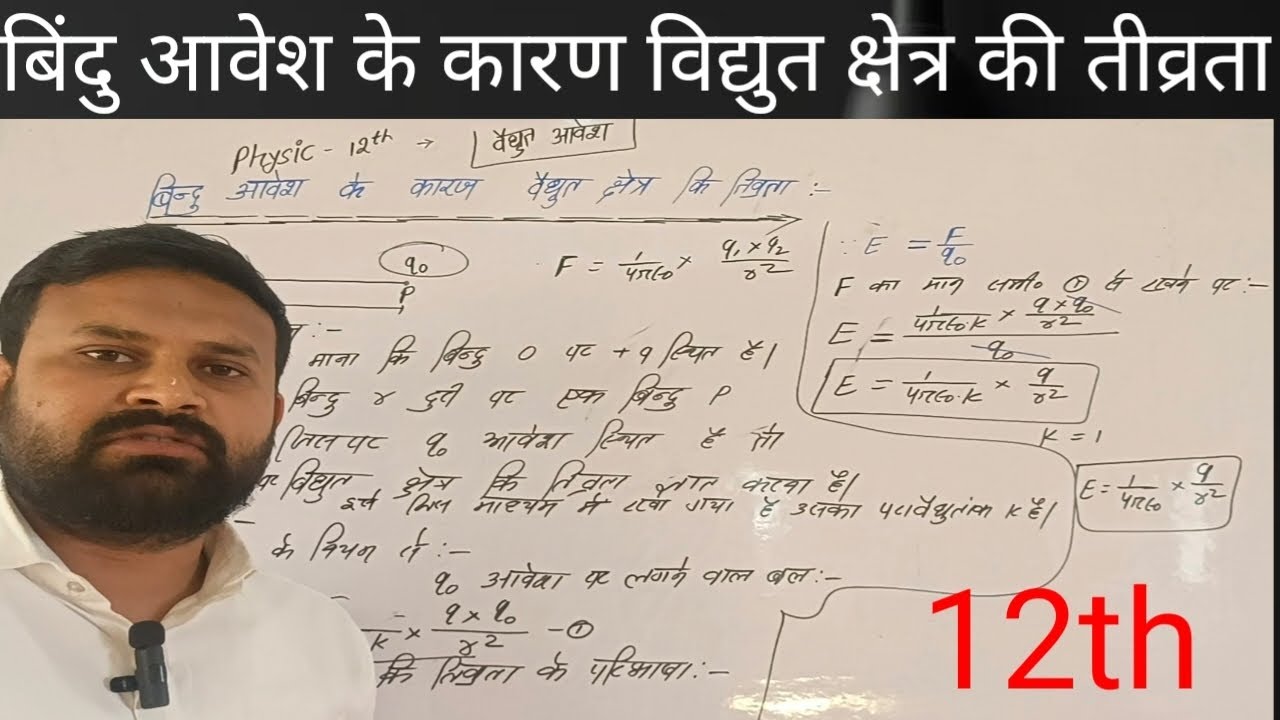 बिंदु आवेश के कारण विद्युत क्षेत्र की तीव्रता
Physic - 12th → वैधुत आवेश
बिन्दु आवेश के कारज वैधुत क्षेत्र कि तिव्रता :-
q₀
P
F = 1/4πε₀ × q₁ × q₂/r²
माना कि बिन्दु O पर +q स्थित है।
बिन्दु r दुरी पर एक बिन्दु P
जिसपर q₀ आवेश स्थित है तो
पर विद्युत क्षेत्र कि तिव्रता ज्ञात करना है।
इसे जिस माध्यम में रखा गया है उसका परावैधुतांक K है।
के नियम से :-
q₀ आवेश पर लगने वाल बल :-
K × q × q₀/r² - ①
कि तिव्रता के परिभाषा :-
∵ E = F/q₀
F का मान समी० ① से रखने पर :-
E = 1/4πε₀.K × q × q₀/r² / q₀
E = 1/4πε₀.K × q/r²
K = 1
E = 1/4πε₀ × q/r²
12th